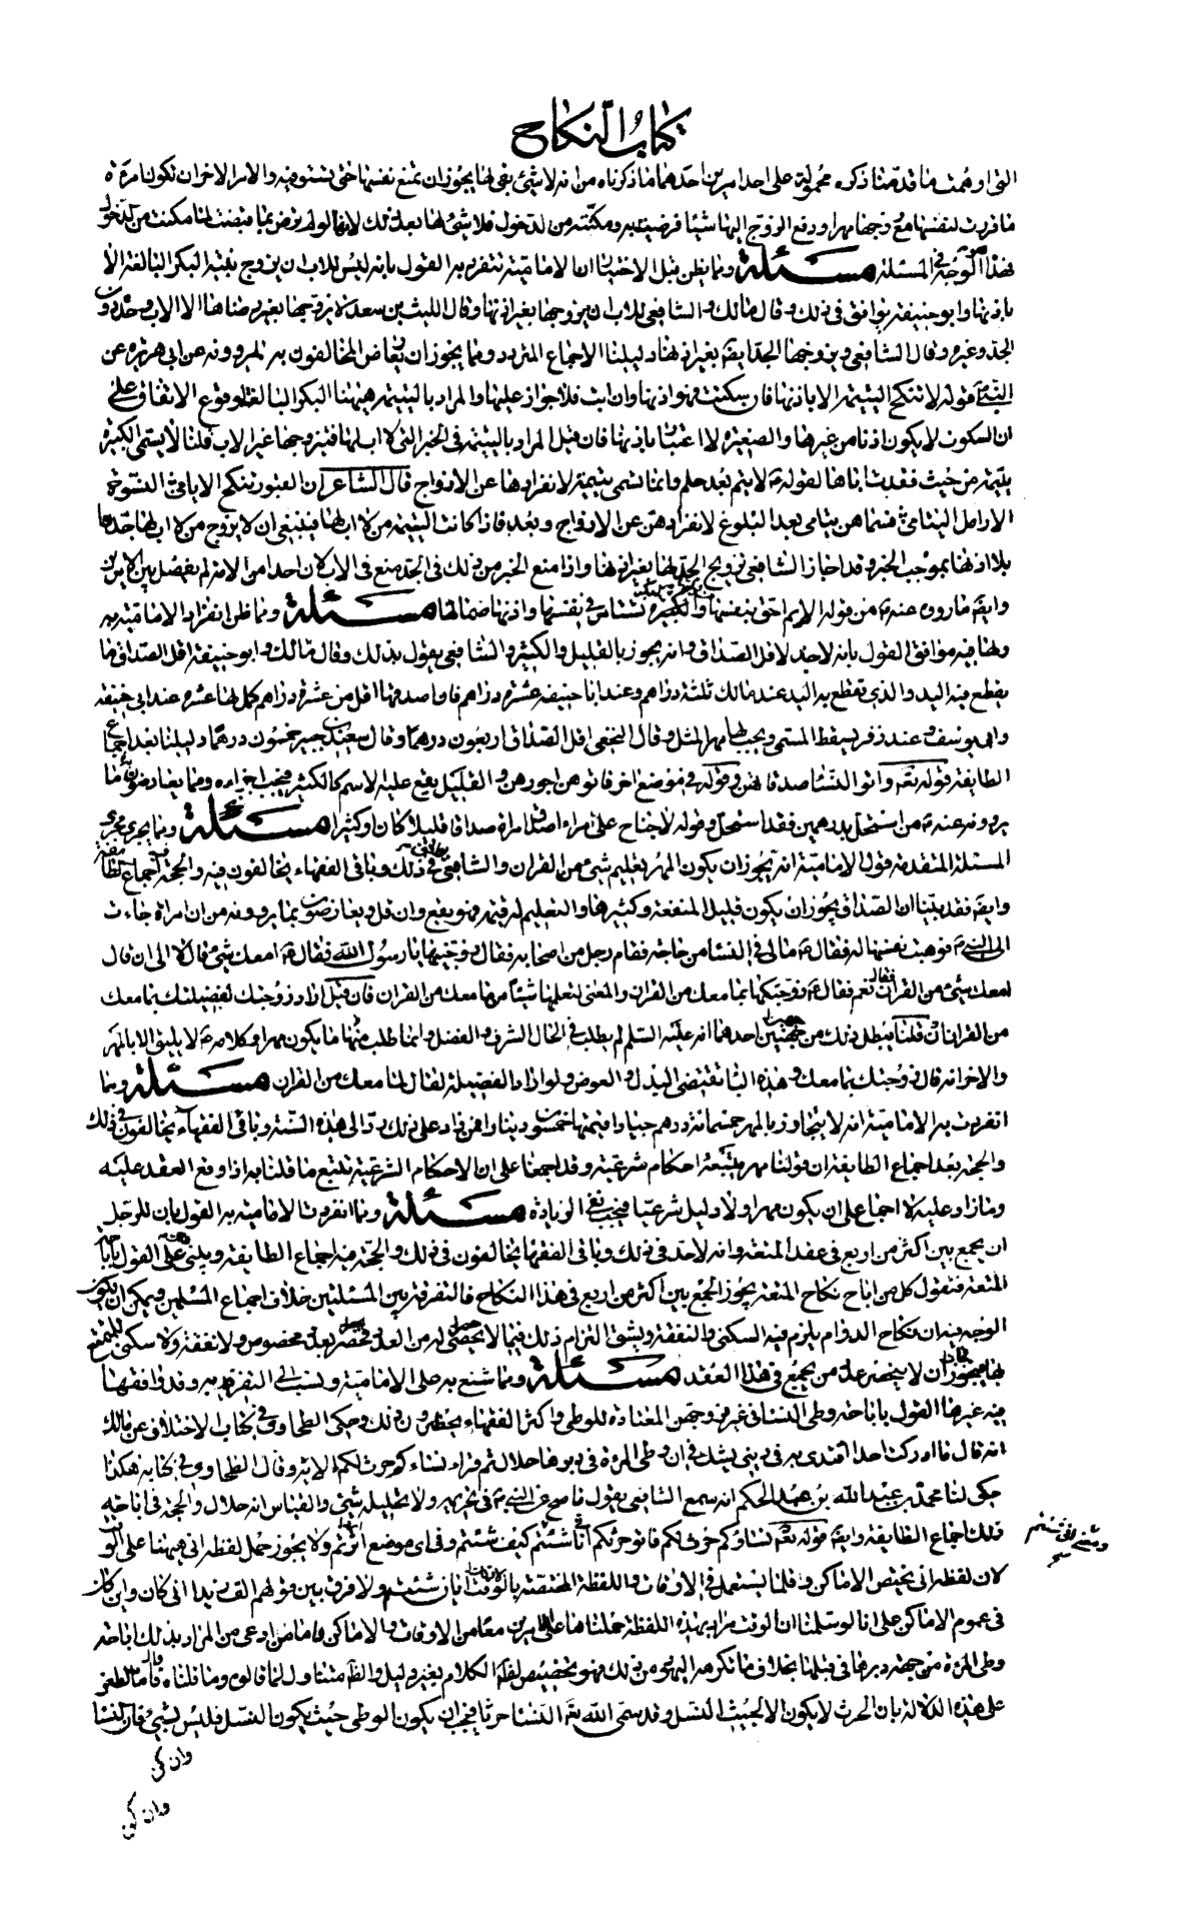 كتاب النكاح
التي اوهمت ما قدمنا ذكره محمولة على احد امرين احدهما ما ذكرناه من انه لا شيء بقي لها يجوز ان تمنع نفسها حتى تستوفيه والامر الاخر ان تكون امرءة
ما قررت لنفسها مع زوجها مهرا ودفع الزوج اليها شيئا فرضيت به ومكنته من الدخول فلا شيء لها بعد ذلك لانها لو لم ترض بما قبضت لما مكنت من الدخول
فهذا الوجه في المسئلة مسئلة ومما يظن قبل الاختبار ان الامامية تنفرد به القول بانه ليس للاب ان يزوج بنته البكر البالغة الا
باذنها وابو حنيفة يوافق في ذلك وقال مالك والشافعي للاب ان يزوجها بغير اذنها وقال الليث بن سعد لا يزوجها بغير رضاها الا الاب وحده دون
الجد وغيره وقال الشافعي ويزوجها الجد ايضا بغير اذنها دليلنا الاجماع المتردد ومما يجوز ان يعارض المخالفون به لمروونه عن ابي هريرة عن
النبي ص قوله لا تنكح اليتيمة الا باذنها فان سكتت فهو اذنها وان ابت فلا جواز عليها والمراد باليتيمة ههنا البكر البالغة لوقوع الاتفاق على
ان السكوت لا يكون اذنا من غيرها والصغيرة لا اعتبار باذنها فان قيل المراد باليتيمة في الخبر التي لا اب لها فيزوجها غير الاب قلنا لا يسمى الكبيرة
يتيمة من حيث فقدت اباها لقوله ع لا يتم بعد حلم وانما تسمى يتيمة لانفرادها عن الازواج قال الشاعر ان القبور تنكح الايامى النسوة
الارامل اليتامى فسماهن يتامى بعد البلوغ لانفرادهن عن الازواج وبعد فاذا كانت اليتيمة من لا اب لها فينبغي ان لا يزوج من لا اب لها جدها
بلا اذنها بموجب الخبر وقد اجاز الشافعي تزويج الجد لها بغير اذنها واذا منع الخبر من ذلك في الجد منع في الاب لان احدا من الامة لم يفصل بين الامرين
وايضا ما رووه عنه ع من قوله الايم احق بنفسها والبكر تستامر في نفسها واذنها صماتها مسئلة ومما ظن انفراد الامامية به
ولها فيه موافق القول بانه لا حد لاقل الصداق وانه يجوز بالقليل والكثير والشافعي يقول بذلك وقال مالك وابو حنيفة اقل الصداق ما
يقطع فيه اليد والذي تقطع به اليد عند مالك ثلثة دراهم وعند ابا حنيفة عشرة دراهم فان اصدقها اقل من عشرة دراهم كمل لها عشرة عند ابي حنيفة
وابي يوسف وعند زفر يسقط المسمى ويجب لها مهر المثل وقال النخعي اقل الصداق اربعون درهما وقال سعيد بن جبير خمسون درهما دليلنا بعد اجماع
الطايفة قوله تعالى واتوا النساء صدقاتهن وقوله في موضع اخر فاتوهن اجورهن والقليل يقع عليه الاسم كالكثير فيجب اجزاءه ومما يعارضون به ما
يروونه عنه ع من استحل بدرهمين فقد استحل وقوله لا جناح على امرء اصدق امراة صداقا قليلا كان او كثيرا مسئلة ومما يجري مجرى
المسئلة المتقدمة قول الامامية انه يجوز ان يكون المهر تعليم شيء من القران والشافعي يوافق في ذلك وباقي الفقهاء يخالفون فيه والحجة اجماع الطايفة
وايضا فقد بينا ان الصداق يجوز ان يكون قليل المنفعة وكثيرها والتعليم له قيمة فهو ينفع وان قل ويعارضون بما يروونه من ان امراة جاءت
الى النبي ص فوهبت نفسها له فقال ع ما لي في النسا من حاجة فقام رجل من اصحابه فقال زوجنيها يا رسول الله فقال ع امعك شيء فقال لا الى ان قال
امعك شيء من القران فقال نعم فقال ع زوجتكها بما معك من القران والمعنى لتعلمها شيئا مما معك من القران فان قيل اراد زوجتك لفضيلتك بما معك
من القران قلنا يبطل ذلك من جهتين احدهما انه عليه السلم لم يطلب في الحال الشرف والفضل وانما طلب منها ما يكون مهرا وكلامه ع لا يليق الا بالمهر
والاخر انه قال زوجتك بما معك وهذه الباء تقتضي البدل والعوض ولو اراد الفضيلة لقال لما معك من القران مسئلة ومما
انفردت به الامامية انه لا يتجاوز بالمهر خمسمائة درهم جيادا قيمتها خمسون دينارا فمن زاد على ذلك رد الى هذه السنة وباقي الفقهاء يخالفون في ذلك
والحجة بعد اجماع الطايفة ان قولنا مهر يتبعه احكام شرعية وقد اجمعنا على ان الاحكام الشرعية تتبع ما قلنا به اذا وقع العقد عليه
وما زاد عليه لا اجماع على ان يكون مهرا ولا دليل شرعيا فيجب نفي الزيادة مسئلة ومما انفردت الامامية به القول بان للرجل
ان يجمع بين اكثر من اربع في عقد المتعة وانه لا حد في ذلك وباقي الفقهاء يخالفون في ذلك والحجة فيه اجماع الطايفة ويبنى على القول باباحة
المتعة فنقول كل من اباح نكاح المتعة يجوز الجمع بين اكثر من اربع في هذا النكاح فالتفرقة بين المسئلتين خلاف اجماع المسلمين ويمكن ان يكون
الوجه فيه ان نكاح الدوام يلزم فيه السكنى والنفقة ويشق التزام ذلك فيما لا يحصى له من العدد فحصر بعدد مخصوص ولا نفقة ولا سكنى للمتمتع
بها فيجوز ان لا ينحصر عدد من يجمع في هذا العقد مسئلة ومما شنع به على الامامية ونسب الى التفرد به وقد وافقها
فيه غيرها القول باباحة وطي النساء في غير فروجهن المعتادة للوطي واكثر الفقهاء يحظرون ذلك وحكى الطحاوي في كتاب الاختلاف عن مالك
انه قال ما ادركت احدا اقتدى به في ديني يشك في ان وطي المراة في دبرها حلال ثم قرء نساءكم حرث لكم الاية وقال الطحاوي في كتابه هكذا
حكى لنا محمد بن عبد الله بن عبد الحكم انه سمع الشافعي يقول ما صح عن النبي ص في تحريمه ولا تحليله شيء والقياس انه حلال والحجة في اباحته
ذلك اجماع الطايفة وايضا قوله تعالى نساؤكم حرث لكم فاتوا حرثكم انى شئتم كيف شئتم وفي اي موضع اثرتم ولا يجوز حمل لفظة انى ههنا على الوقت
لان لفظة انى يختص الاماكن وقلما يستعمل في الاوقات واللفظة المختصة بالوقت ايان شئتم ولا فرق بين قولهم الق زيدا انى كان واين كان
في عموم الاماكن على انا لو سلمنا ان الوقت مراد بهذه اللفظة حملناها على الامرين معا من الاوقات والاماكن فاما من ادعى من المراد بذلك اباحة
وطي المراة من جهة دبرها في قبلها بخلاف ما تكرهه اليهود من ذلك فهو تخصيص لظاهر الكلام بغير دليل والظاهر متناول لما قالوه وما قلناه فاما الطعن
على هذه الدلالة بان الحرث لا يكون الا بحيث النسل وقد سمى الله تعالى النساء حرثا فيجب ان يكون الوطي حيث يكون النسل فليس بشيء فان النسا
وان كن
وان كن